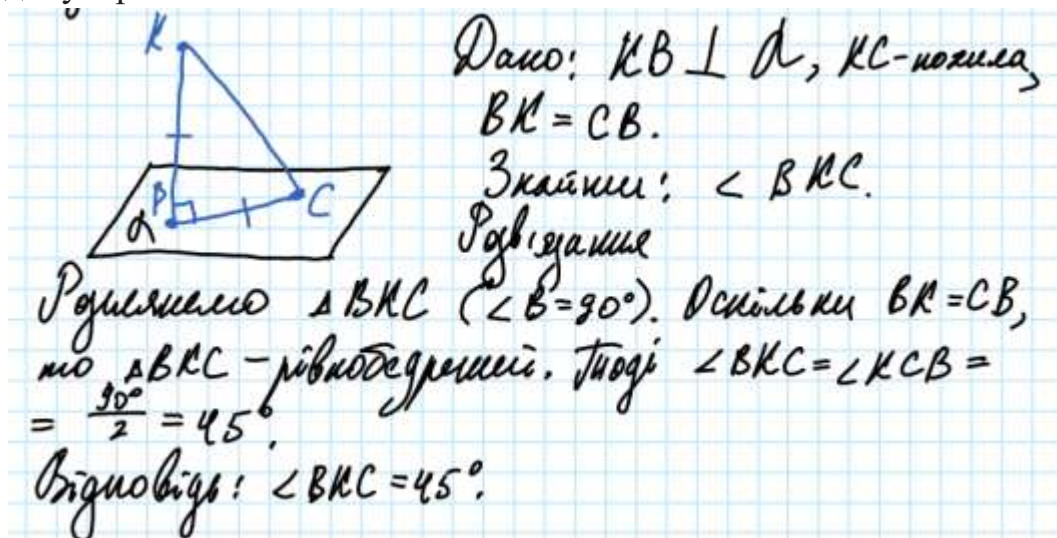 K
B
C
α
Дано: KB ⊥ α, KC-похила,
BK = CB.
Знайти: < BKC.
Розв'язання
Розглянемо ΔBKC (<B=90°). Оскільки BK=CB,
то ΔBKC – рівнобедрений. Тоді <BKC=<KCB=
= 90°/2 = 45°.
Відповідь: <BKC=45°.